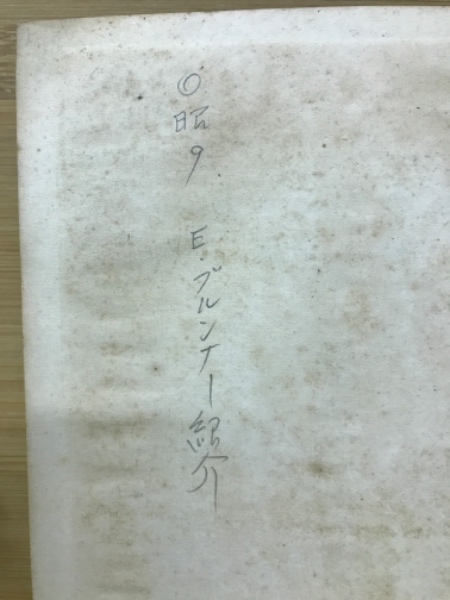 ○昭9. E.ブルンナー紹介